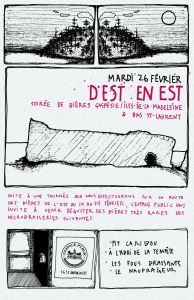 MARDI 26 FÉVRIER
D'EST EN EST
SOIRÉE DE BIÈRES GASPÉSIE/ÎLES-DE-LA-MADELEINE
& BAS ST-LAURENT
SUITE À UNE TOURNÉE QUE NOUS EFFECTUERONS SUR LA ROUTE
DES BIÈRES DE L'EST DU 19 AU 24 FÉVRIER, L'ESPACE PUBLIC VOUS
INVITE À VENIR DÉGUSTER DES BIÈRES TRÈS RARES DES
MICROBRASSERIES SUIVANTES:
PIT CARIBOU
À L'ABRI DE LA TEMPÊTE
LES FOUS BRASSANT
LE NAUFRAGEUR